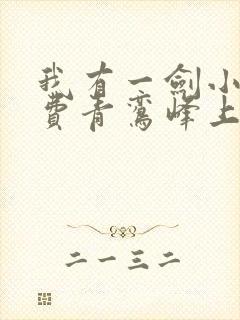 我有一劍小
費青鸞峰上
二一三二